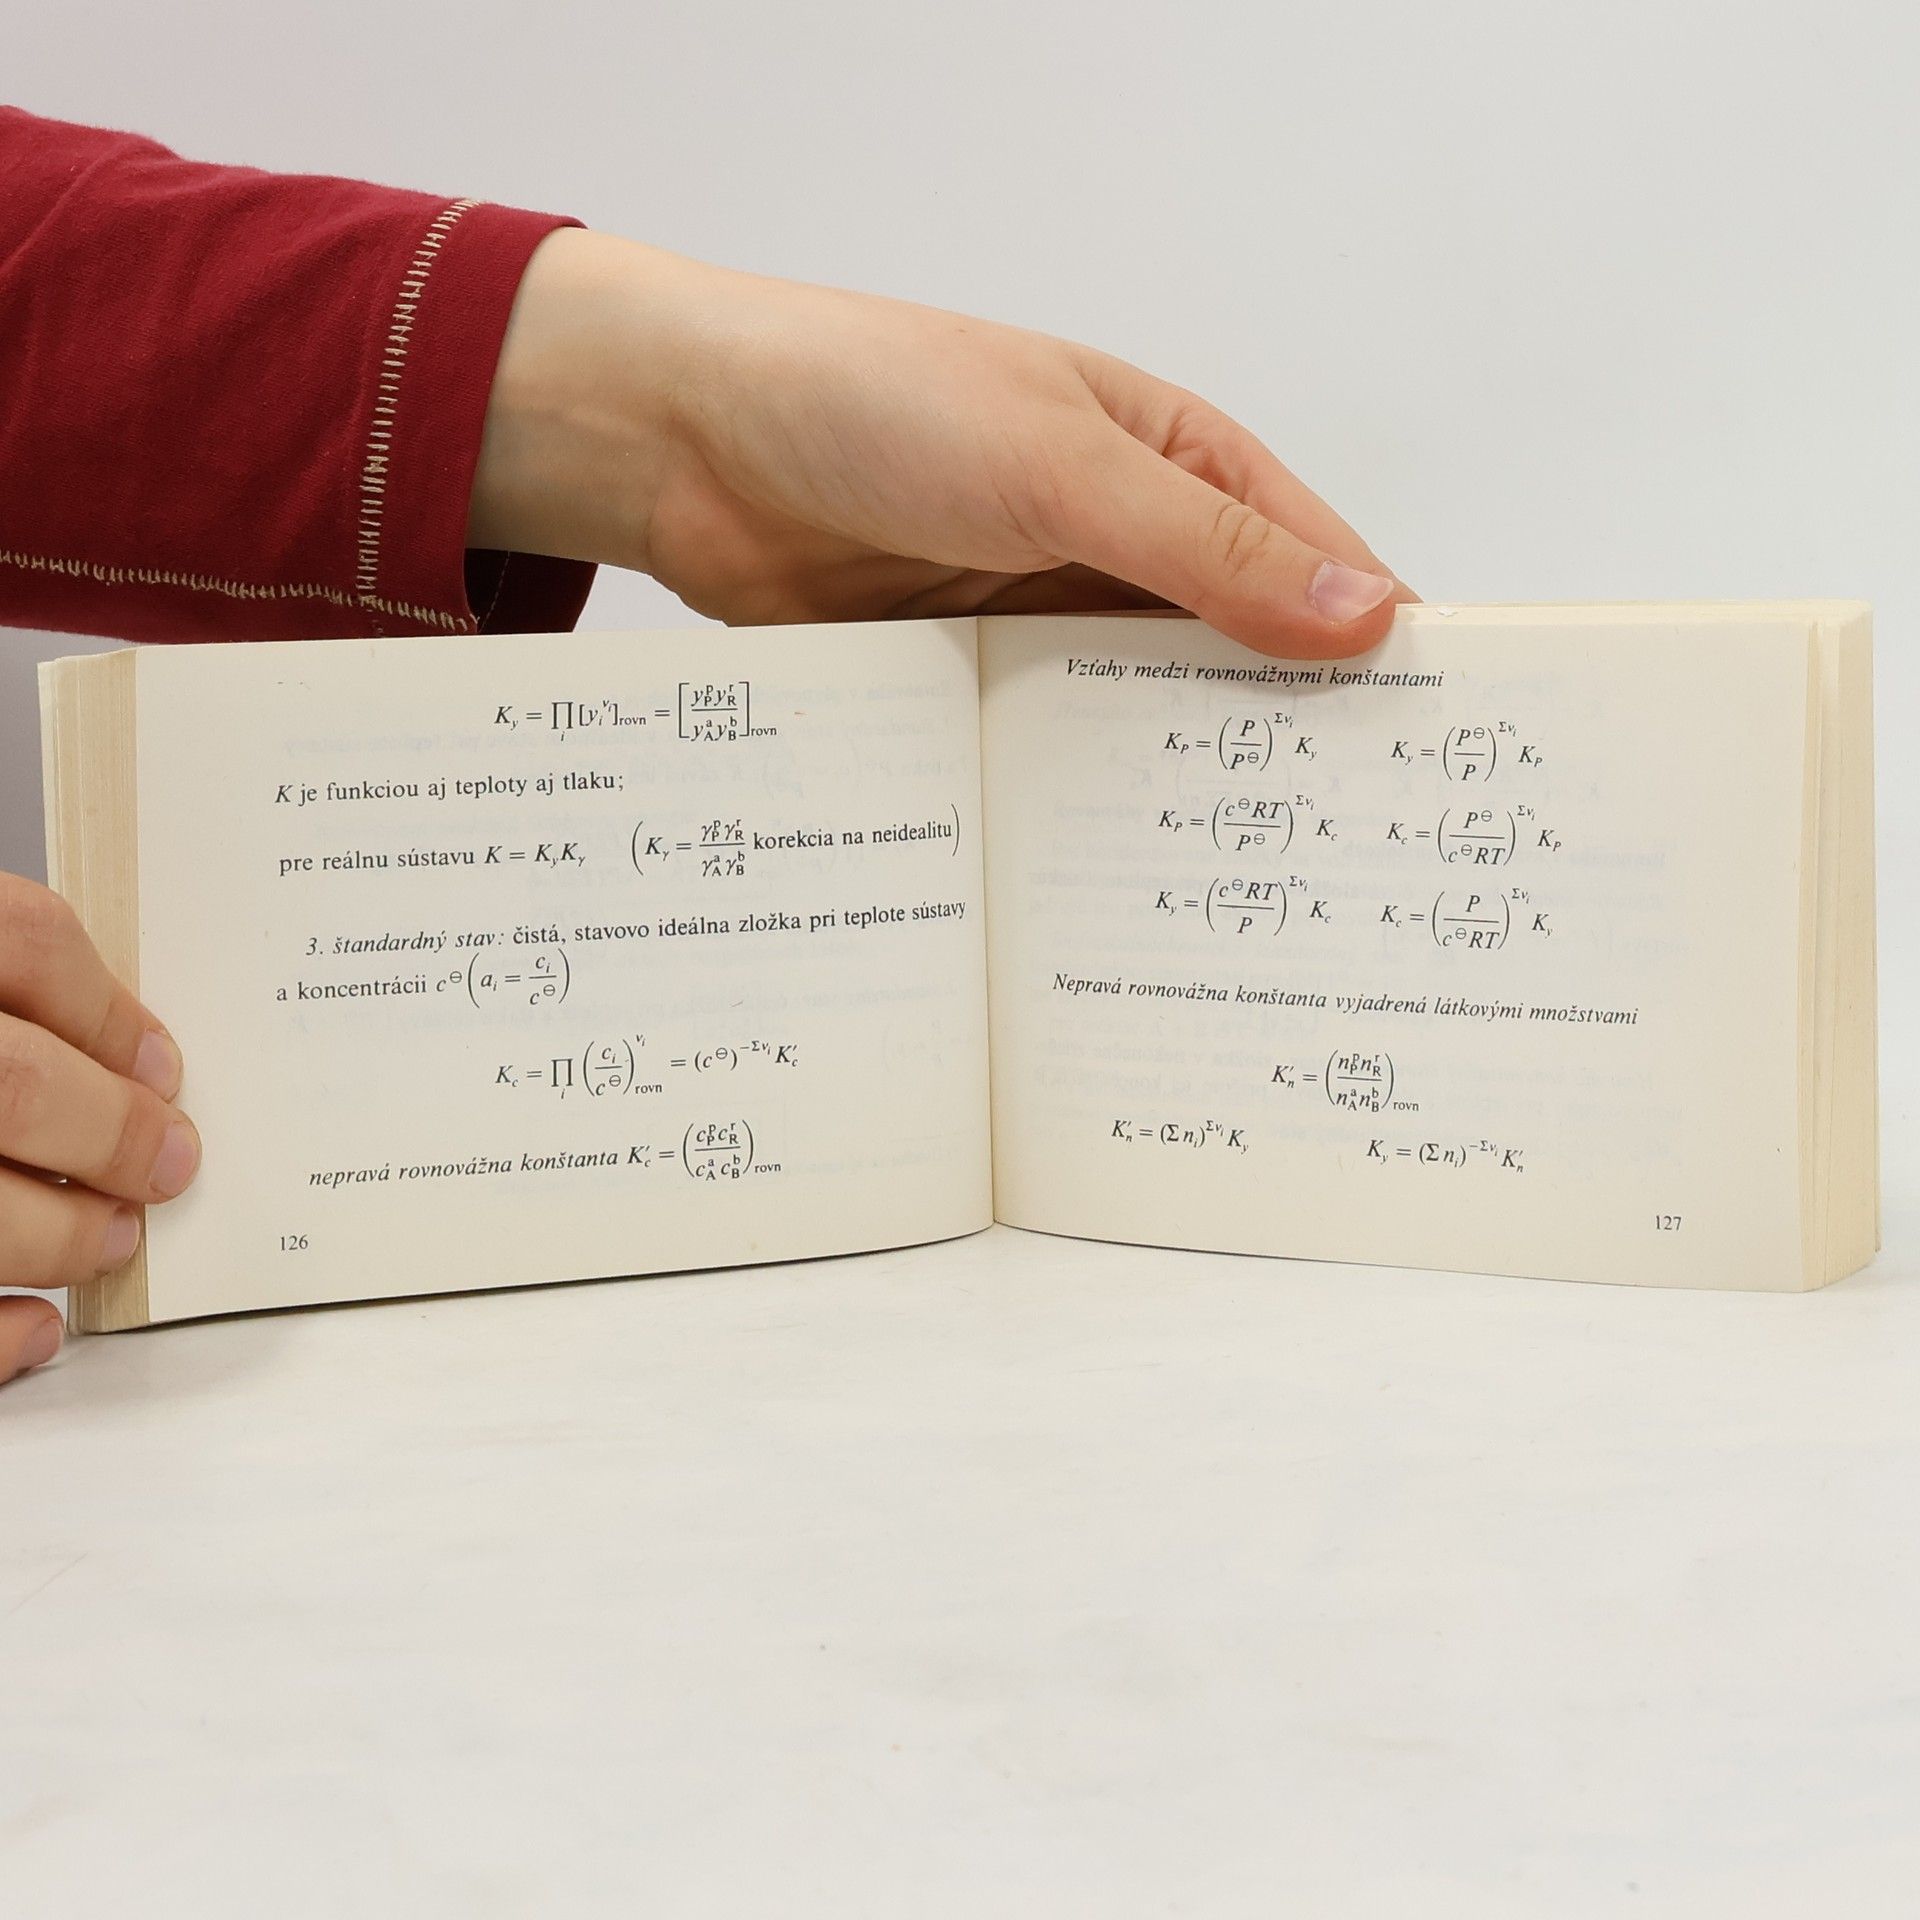 K_y = ∏_i [y_i^{ν_i}]_rovn = [y_P^p y_R^r / y_A^a y_B^b]_rovn
K je funkciou aj teploty aj tlaku;
pre reálnu sústavu K = K_y K_γ (K_γ = γ_P^p γ_R^r / γ_A^a γ_B^b korekcia na neidealitu)
3. štandardný stav: čistá, stavovo ideálna zložka pri teplote sústavy
a koncentrácii c^⊖ (a_i = c_i / c^⊖)
K_c = ∏_i (c_i / c^⊖)^{ν_i}_rovn = (c^⊖)^{−Σν_i} K′_c
nepravá rovnovážna konštanta K′_c = (c_P^p c_R^r / c_A^a c_B^b)_rovn
126
Vzťahy medzi rovnovážnymi konštantami
K_P = (P / P^⊖)^{Σν_i} K_y K_y = (P^⊖ / P)^{Σν_i} K_P
K_P = (c^⊖RT / P^⊖)^{Σν_i} K_c K_c = (P^⊖ / c^⊖RT)^{Σν_i} K_P
K_y = (c^⊖RT / P)^{Σν_i} K_c K_c = (P / c^⊖RT)^{Σν_i} K_y
Nepravá rovnovážna konštanta vyjadrená látkovými množstvami
K′_n = (n_P^p n_R^r / n_A^a n_B^b)_rovn
K′_n = (Σ n_i)^{Σν_i} K_y K_y = (Σ n_i)^{−Σν_i} K′_n
127